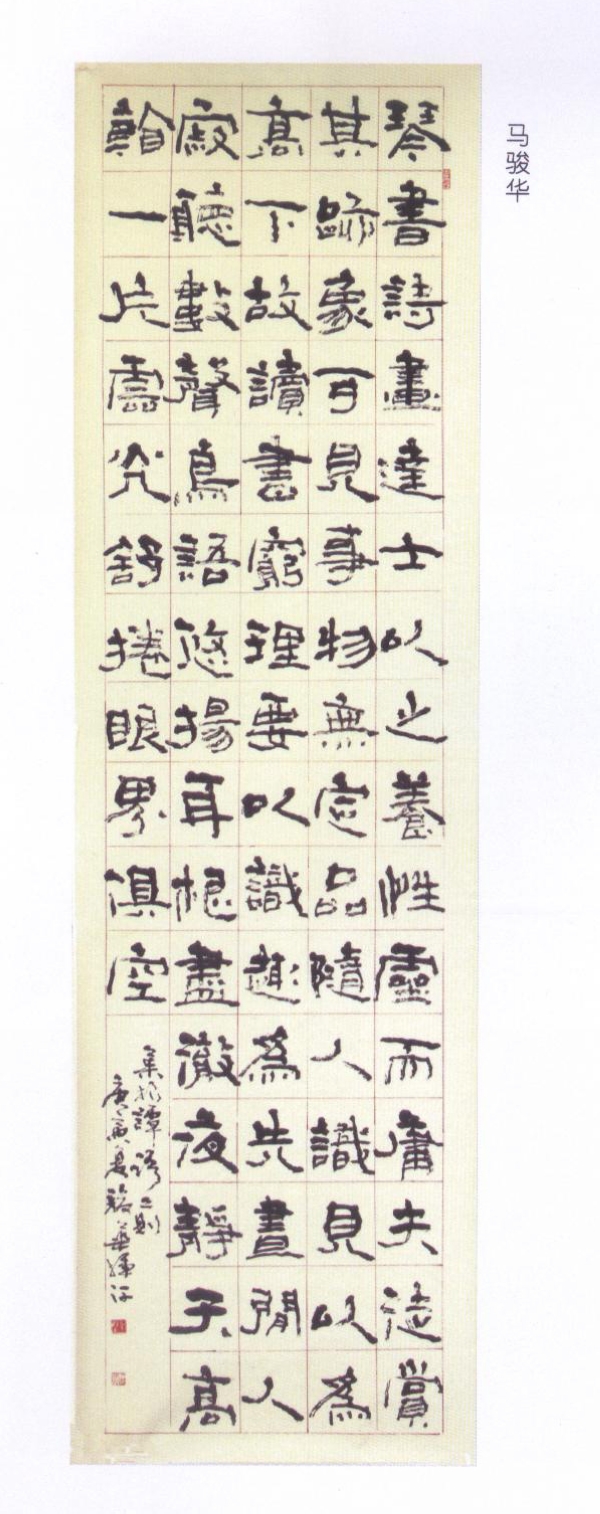 马骏华
琴書詩畫達士以之養性靈而庸夫徒賞
其跡象可見事物無定品隨人識見以為
高下故讀書窮理要以識趣為先晝閒人
寂聽數聲鳥語悠揚耳根盡澈夜靜天高
看一片雲光舒捲眼界俱空
集 譚 二則
庚寅夏 華揮汗